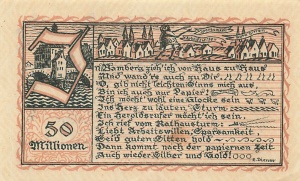 In Bamberg zieh ich von Haus zu Haus
Und wand're auch zu Dir
O, gib nicht leichten Sinns mich aus
Bin ich auch nur Papier!
Ich möcht' wohl eine Glocke sein
Ins Herz zu läuten Sturm
Ein Heroldsrufer möcht' ich sein
Ich rief vom Rathausturm:
Liebt Arbeitswillen, Sparsamkeit
Seid guten Sitten hold
Dann kommt nach der papiernen Zeit
Auch wieder Silber und Gold!
50
Millionen